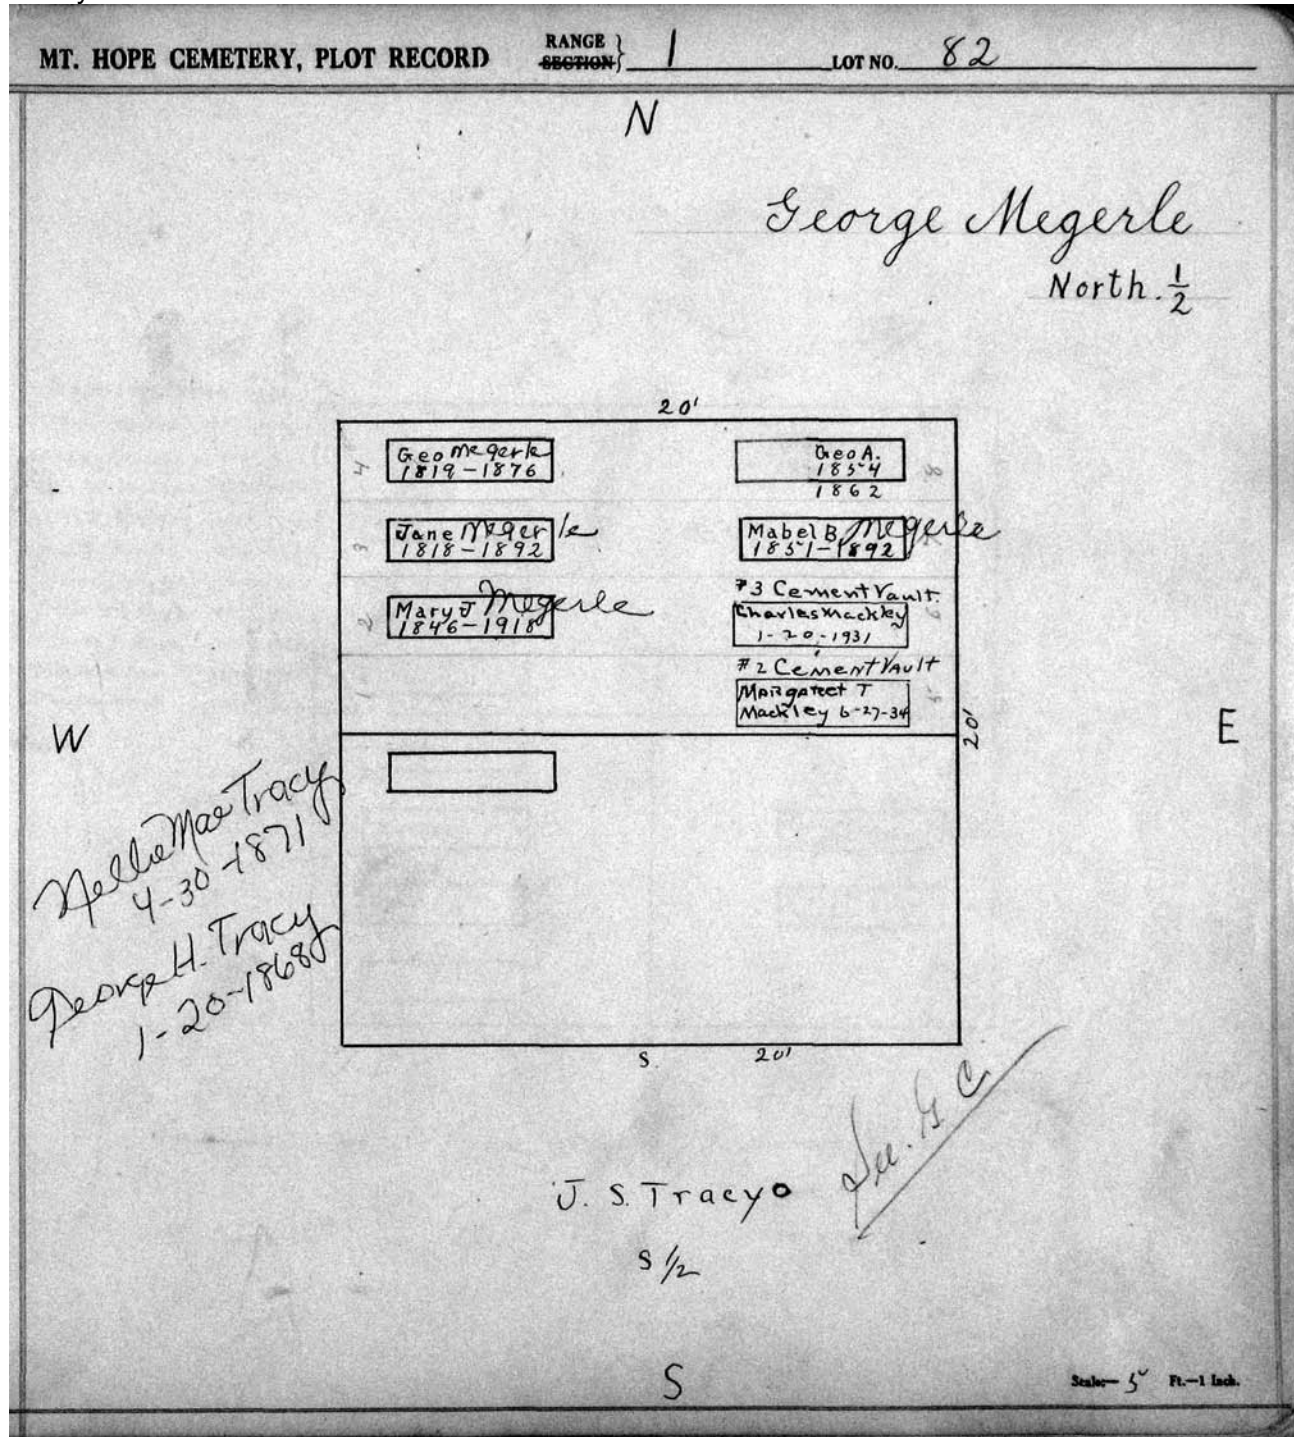 MT. HOPE CEMETERY, PLOT RECORD RANGE SECTION } 1 LOT NO. 82
N
George Megerle
North. 1/2
20'
4 Geo Megerle
1819-1876
Geo A. 8
1854
1862
3 Jane Megerle
1818-1892
Mabel B. Megerle
1851-1892
2 Mary J Megerle
1846-1918
#3 Cement Vault.
Charles Mackley 6
1-20-1931
#2 Cement Vault
1 Margaret T 5
Mackley 6-27-34
20'
W
E
Nellie Mae Tracy
4-30-1871
George H. Tracy
1-20-1868
S. 20'
See. G C
J. S. Tracy
S 1/2
S
Scale— 5 Ft.—1 Inch.